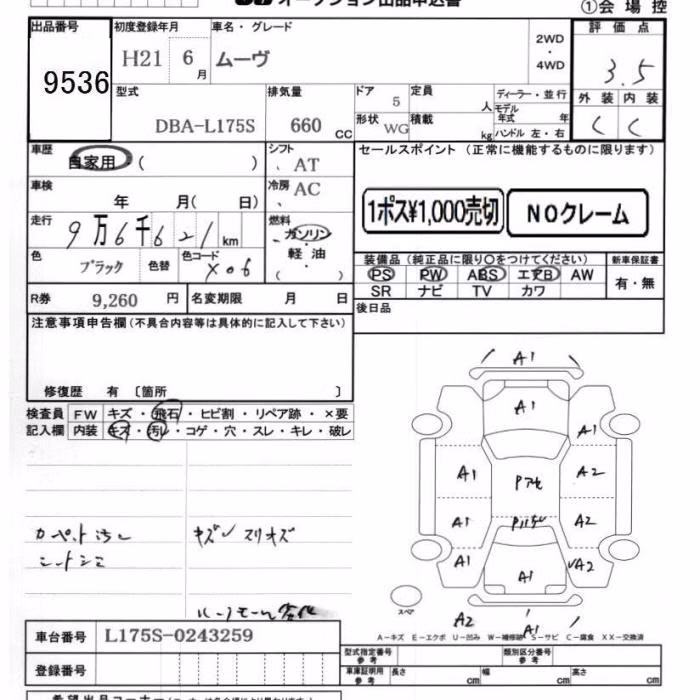 オークション出品申込書
①会場控
出品番号 初度登録年月 車名・グレード 評価点
9536 H21 6月 ムーヴ 2WD・4WD 3.5
型式 排気量 ドア 定員 ディーラー・並行 外装 内装
DBA-L175S 660 CC 5 人 モデル年式 年 C C
形状 WG 積載 kg ハンドル 左・右
車歴 自家用 ( ) シフト AT セールスポイント (正常に機能するものに限ります)
車検 年 月( 日) 冷房 AC
1ポス¥1,000売切 NOクレーム
走行 9万6千621km 燃料 ガソリン・軽油 ( )
色 ブラック 色替 色コード X06
装備品(純正品に限り○をつけてください) 新車保証書
PS PW ABS エアB AW 有・無
SR ナビ TV カワ
R券 9,260 円 名変期限 月 日
後日品
注意事項申告欄(不具合内容等は具体的に記入して下さい)
修復歴 有 〔箇所 〕
検査員 FW キズ・飛石・ヒビ割・リペア跡・×要
記入欄 内装 キズ・汚レ・コゲ・穴・スレ・キレ・破レ
A1
A1
A1
A1 A2
A1 A2
A1 A2
A1
カーペット汚レ キズ スリキズ
シートシミ
スペア
A2
A1
A-キズ E-エクボ U-凹み W-補修跡 S-サビ C-腐食 XX-交換済
車台番号 L175S-0243259
登録番号
型式指定番号 参考 類別区分番号 参考
車庫証明用 参考 長さ cm 幅 cm 高さ cm